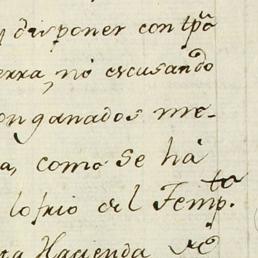 disponer con tpã
erra, no escusando
on ganados me-
a, como se há
lo frio del Temp.to
na Hacienda